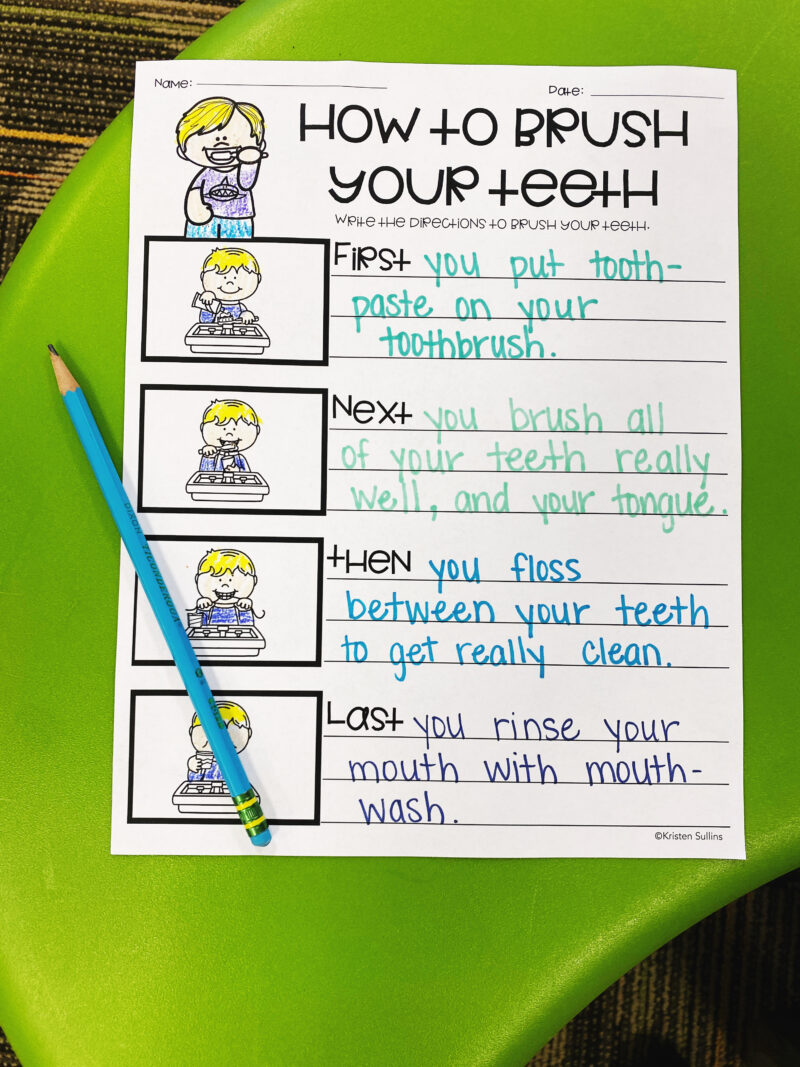 Name:
Date:
How to Brush
Your Teeth
Write the directions to brush your teeth.
First you put tooth-
paste on your
toothbrush.
Next you brush all
of your teeth really
well, and your tongue.
Then you floss
between your teeth
to get really clean.
Last you rinse your
mouth with mouth-
wash.
©Kristen Sullins
DIXON TICONDEROGA